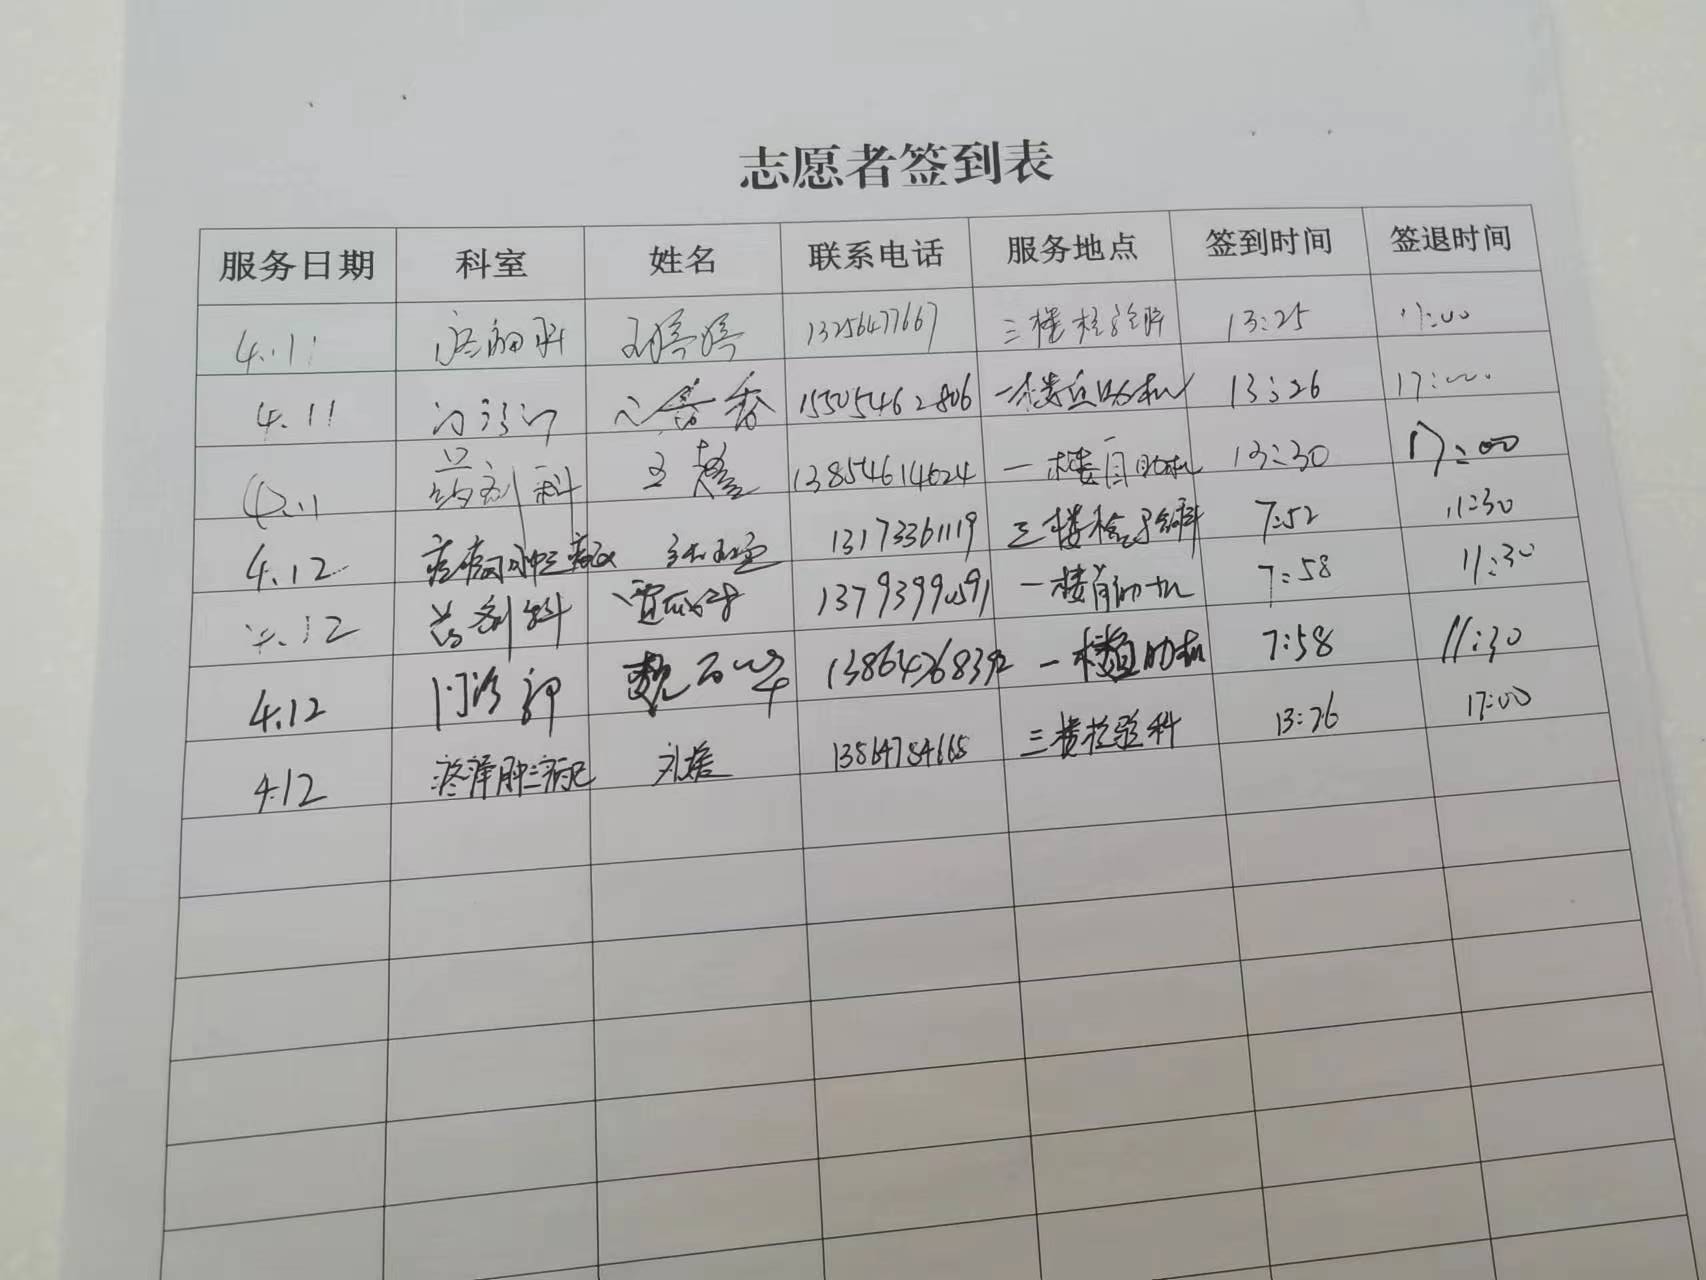 志愿者签到表
服务日期 科室 姓名 联系电话 服务地点 签到时间 签退时间
4.11 科 王婷婷 13256477667 三楼检验科 13:25 17:00
4.11 门诊 香 15505462806 一楼自助机 13:26 17:00
4.11 药剂科 王 13854614624 一楼自助机 13:30 17:00
4.12 13173361119 三楼检验科 7:52 11:30
4.12 药剂科 贾 一楼自助机 7:58 11:30
4.12 门诊部 魏 13864268392 一楼自助机 7:58 11:30
4.12 疼痛肿 刘 13864784668 三楼检验科 13:26 17:00